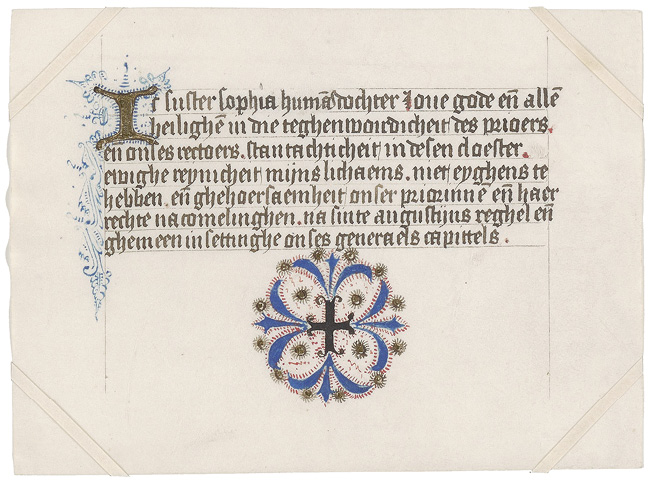 Ic suster sophia humãsdochter Joue gode eñ allẽ
heilighẽ in die teghenwordicheit des prioers.
eñ onses rectoers. stantachticheit in desen cloester.
ewighe reynicheit mijns lichaems. niet eyghens te
hebben. eñ ghehoersaemheit onser priorinnẽ eñ haer
rechte nacomelinghen. na sinte augustijns reghel eñ
ghemeen insettinghe onses generaels capittels.